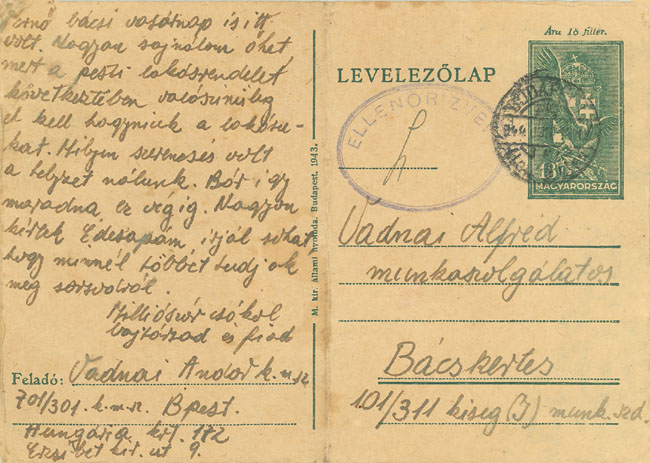 Ernő bácsi vasárnap is itt
volt. Nagyon sajnálom őket,
mert a pesti lakásrendelet
következtében valószinüleg
el kell hagyniuk a lakásu-
kat. Milyen szerencsés volt
a helyzet nálunk. Bár igy
maradna ez végig. Nagyon
kérlek Édesapám, irjál sokat
hogy minnél többet tudjak
meg sorsodról.
Milliószor csókol
bajtársad és fiad
Feladó: Vadnai Andor k.m.sz
701/301. k.m.sz. Bpest.
Hungária krt. 172
Erzsébet kir. út 9.
M. kir. Állami Nyomda, Budapest, 1943.
Ára 18 fillér.
LEVELEZŐLAP
ELLENŐRIZVE
18
MAGYARORSZÁG
Vadnai Alfréd
munkaszolgálatos
Bácskertes
101/311 kiség (3) munk. szd.